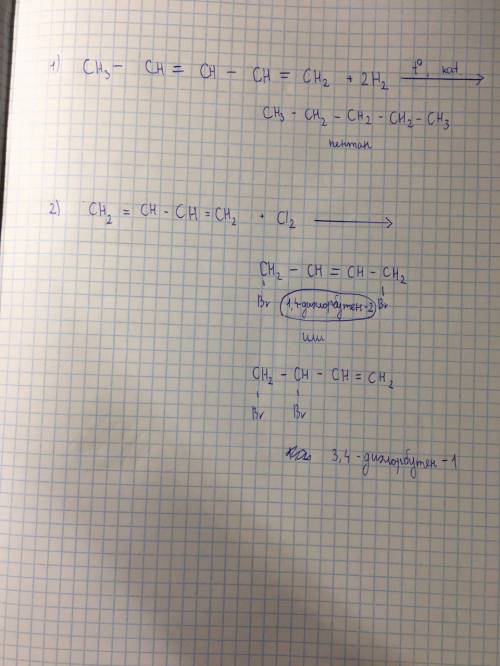 1) CH₃ – CH = CH – CH = CH₂ + 2H₂ t°, kat
CH₃ – CH₂ – CH₂ – CH₂ – CH₃
пентан
2) CH₂ = CH – CH = CH₂ + Cl₂
CH₂ – CH = CH – CH₂
Br 1,4-дихлорбутен-2 Br
или
CH₂ – CH – CH = CH₂
Br Br
3,4-дихлорбутен-1